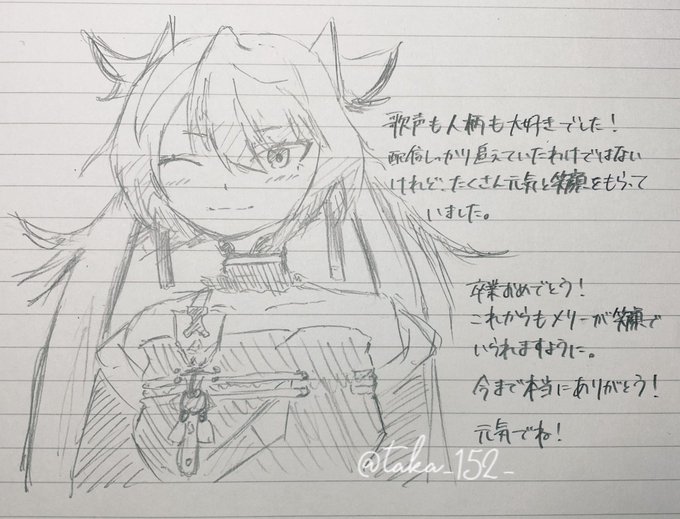 歌声も人柄も大好きでした！
配信しっかり追えていたわけではない
けれど、たくさん元気と笑顔をもらって
いました。
卒業おめでとう！
これからもメリーが笑顔で
いられますように。
今まで本当にありがとう！
元気でね！
@taka_152_